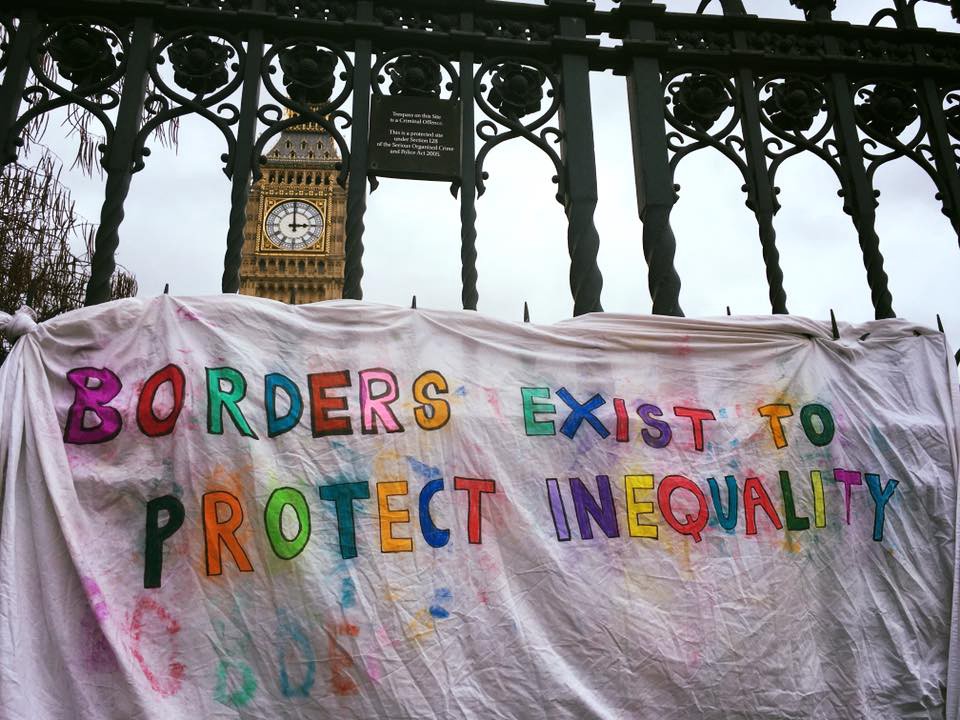 Trespass on this Site
is a Criminal Offence
This is a protected site
under Section 128
of the Serious Organised Crime
and Police Act 2005.
BORDERS EXIST TO
PROTECT INEQUALITY